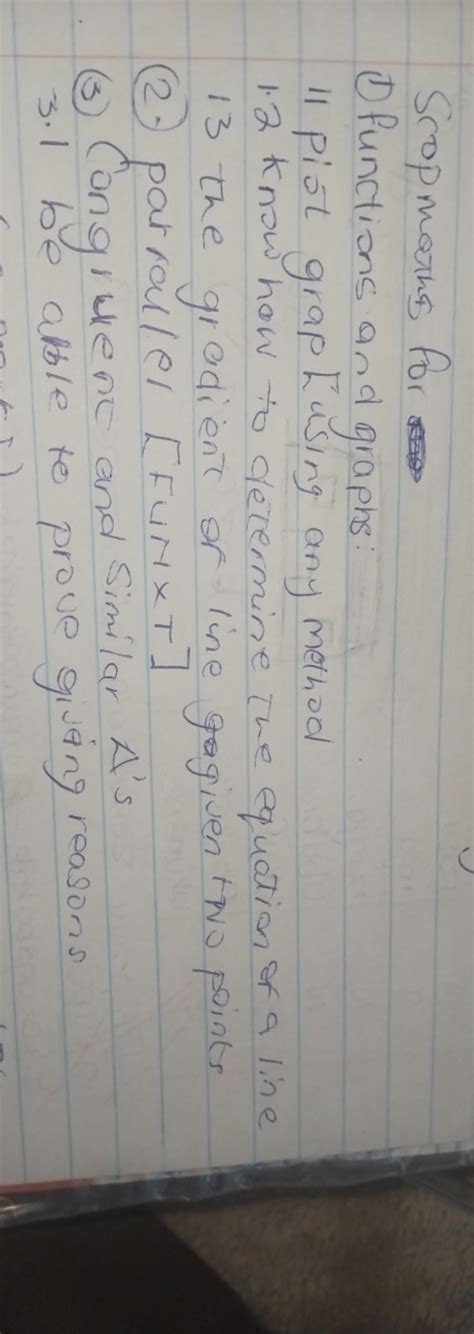 Scop maths for
① functions and graphs:
11 plot grap [using any method
1.2 Know how to determine the equation of a line
13 the gradient of line given two points
②. parrallel [FUNXT]
③ Congruent and Similar Δ's
3.1 be able to prove giving reasons